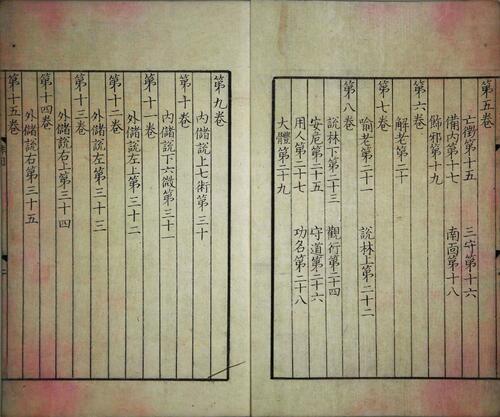 第五卷
亡徵第十五　三守第十六
備內第十七　南面第十八
飾邪第十九
第六卷
解老第二十
第七卷
喻老第二十一　說林上第二十二
第八卷
說林下第二十三　觀行第二十四
安危第二十五　守道第二十六
用人第二十七　功名第二十八
大體第二十九
第九卷
內儲說上七術第三十
第十卷
內儲說下六微第三十一
第十一卷
外儲說左上第三十二
第十二卷
外儲說左第三十三
第十三卷
外儲說右上第三十四
第十四卷
外儲說右第三十五
第十五卷